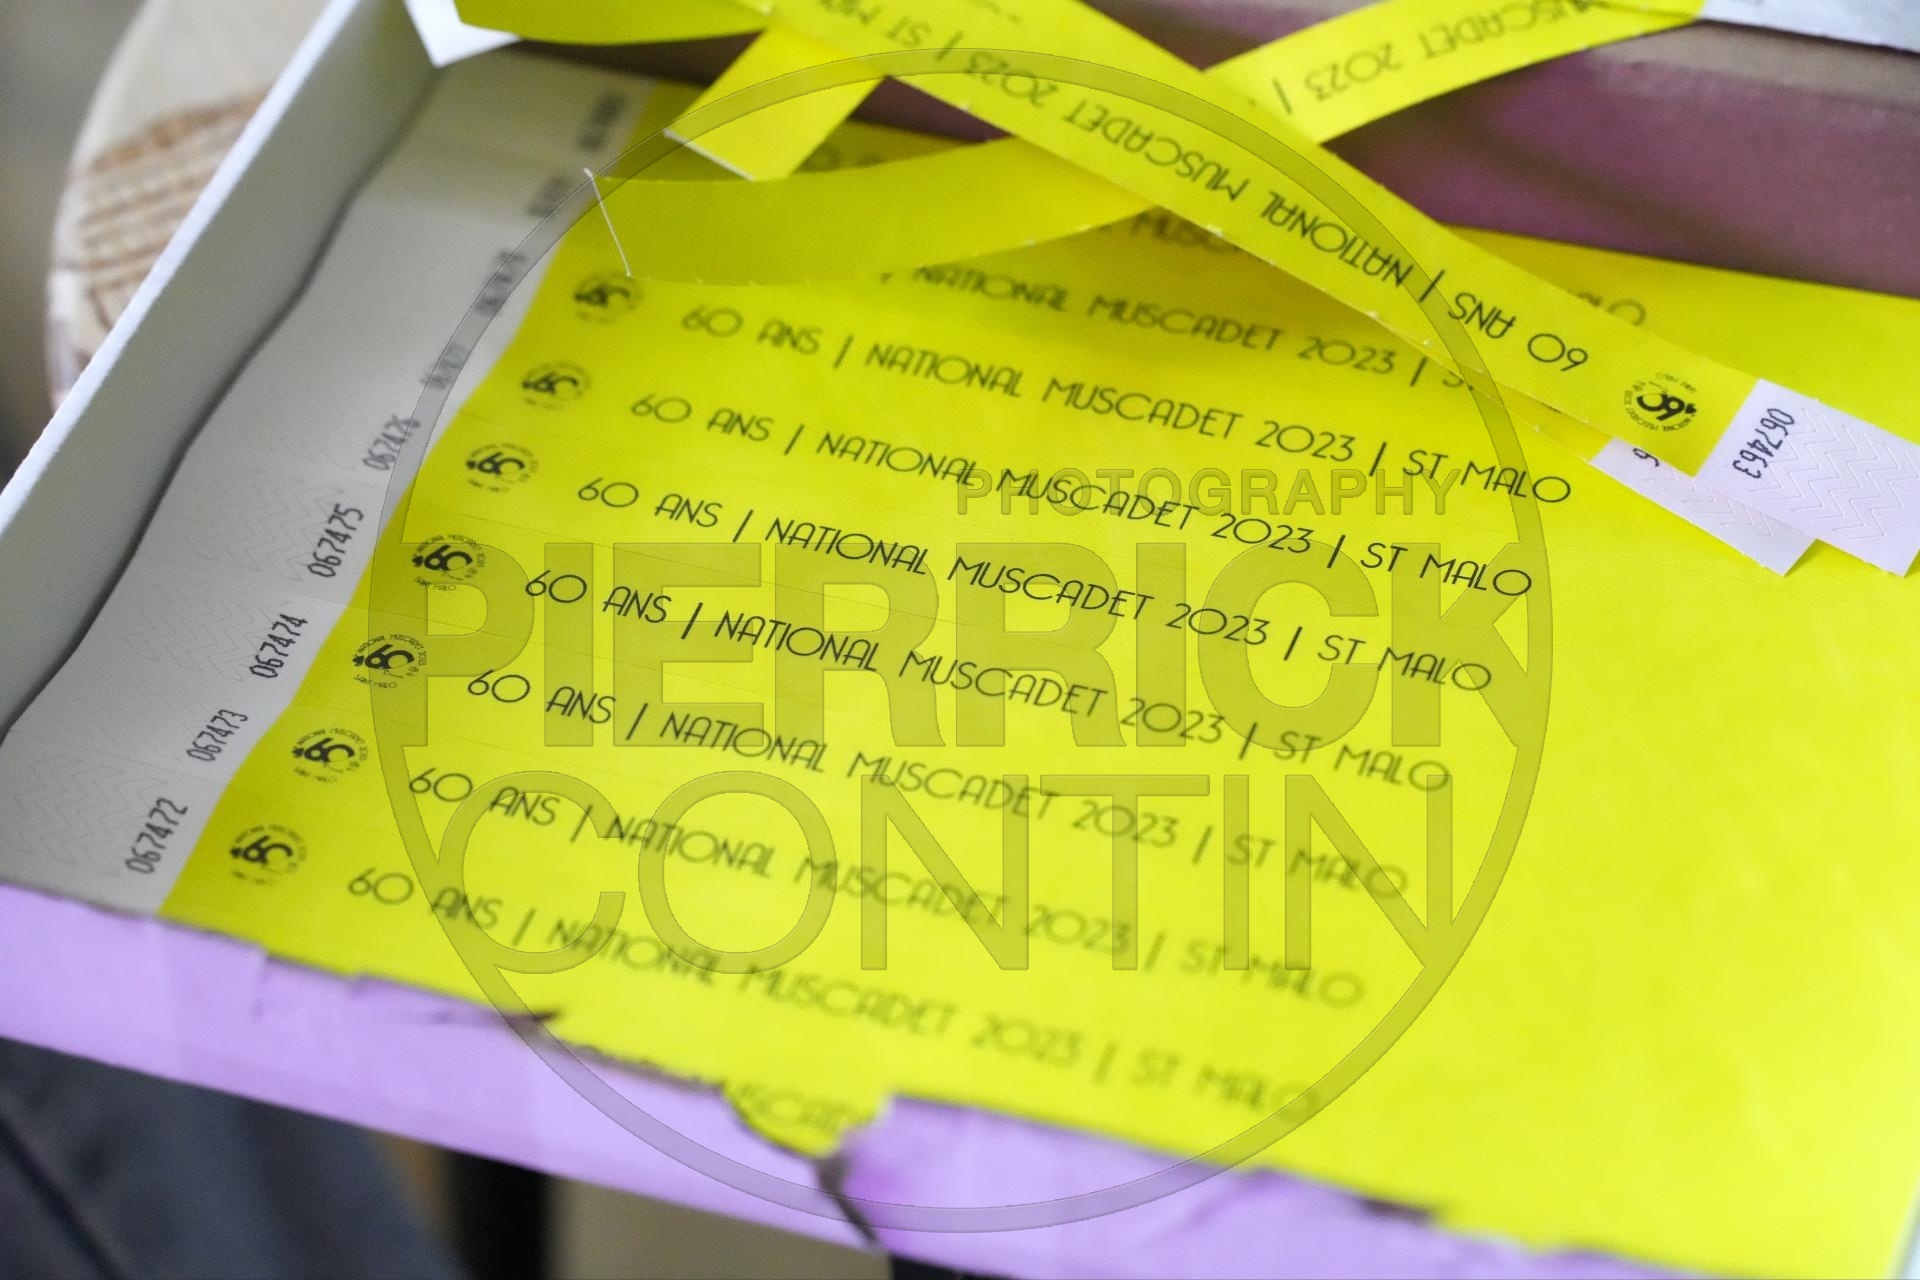 ST MO
MUSCADET 2023 |
60 ANS | NATIONAL MUSCADET 2023 | ST MO
067463
NATIONAL MUSCADET 2023 | S
60 ANS | NATIONAL MUSCADET 2023 | ST MALO
067476
60 ANS | NATIONAL MUSCADET 2023 | ST MALO
067475
60 ANS | NATIONAL MUSCADET 2023 | ST MALO
067474
60 ANS | NATIONAL MUSCADET 2023 | ST MALO
067473
60 ANS | NATIONAL MUSCADET 2023 | ST MALO
067472
60 ANS | NATIONAL MUSCADET 2023 | ST MALO
60 ANS | NATIONAL MUSCADET 2023 | ST MALO
PHOTOGRAPHY
PIERRICK
CONTIN